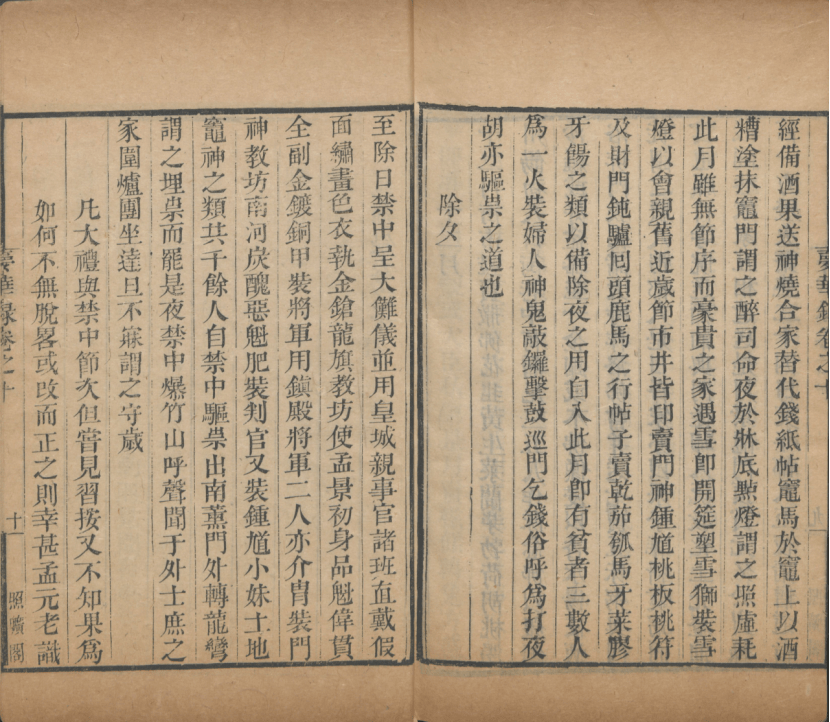 經備酒果送神燒合家替代錢紙帖竈馬於竈上以酒
糟塗抹竈門謂之醉司命夜於牀底㸃燈謂之照虛耗
此月雖無節序而豪貴之家遇雪卽開筵塑雪獅裝雪
燈以會親舊近歲節市井皆印賣門神鍾馗桃板桃符
及財門鈍驢囘頭鹿馬之行帖子賣乾茄瓠馬牙菜膠
牙餳之類以備除夜之用自入此月卽有貧者三數人
爲一火裝婦人神鬼敲鑼擊鼓巡門乞錢俗呼爲打夜
胡亦驅祟之道也
除夕
至除日禁中呈大儺儀並用皇城親事官諸班直戴假
面繡畫色衣執金鎗龍旗教坊使孟景初身品魁偉貫
全副金鍍銅甲裝將軍用鎭殿將軍二人亦介胄裝門
神教坊南河炭醜惡魁肥裝判官又裝鍾馗小妹土地
竈神之類共千餘人自禁中驅祟出南薰門外轉龍彎
謂之埋祟而罷是夜禁中爆竹山呼聲聞于外士庶之
家圍爐團坐達旦不寐謂之守歲
凡大禮與禁中節次但嘗見習按又不知果爲
如何不無脫畧或改而正之則幸甚孟元老識
夢華錄卷之十
十一
照曠閣